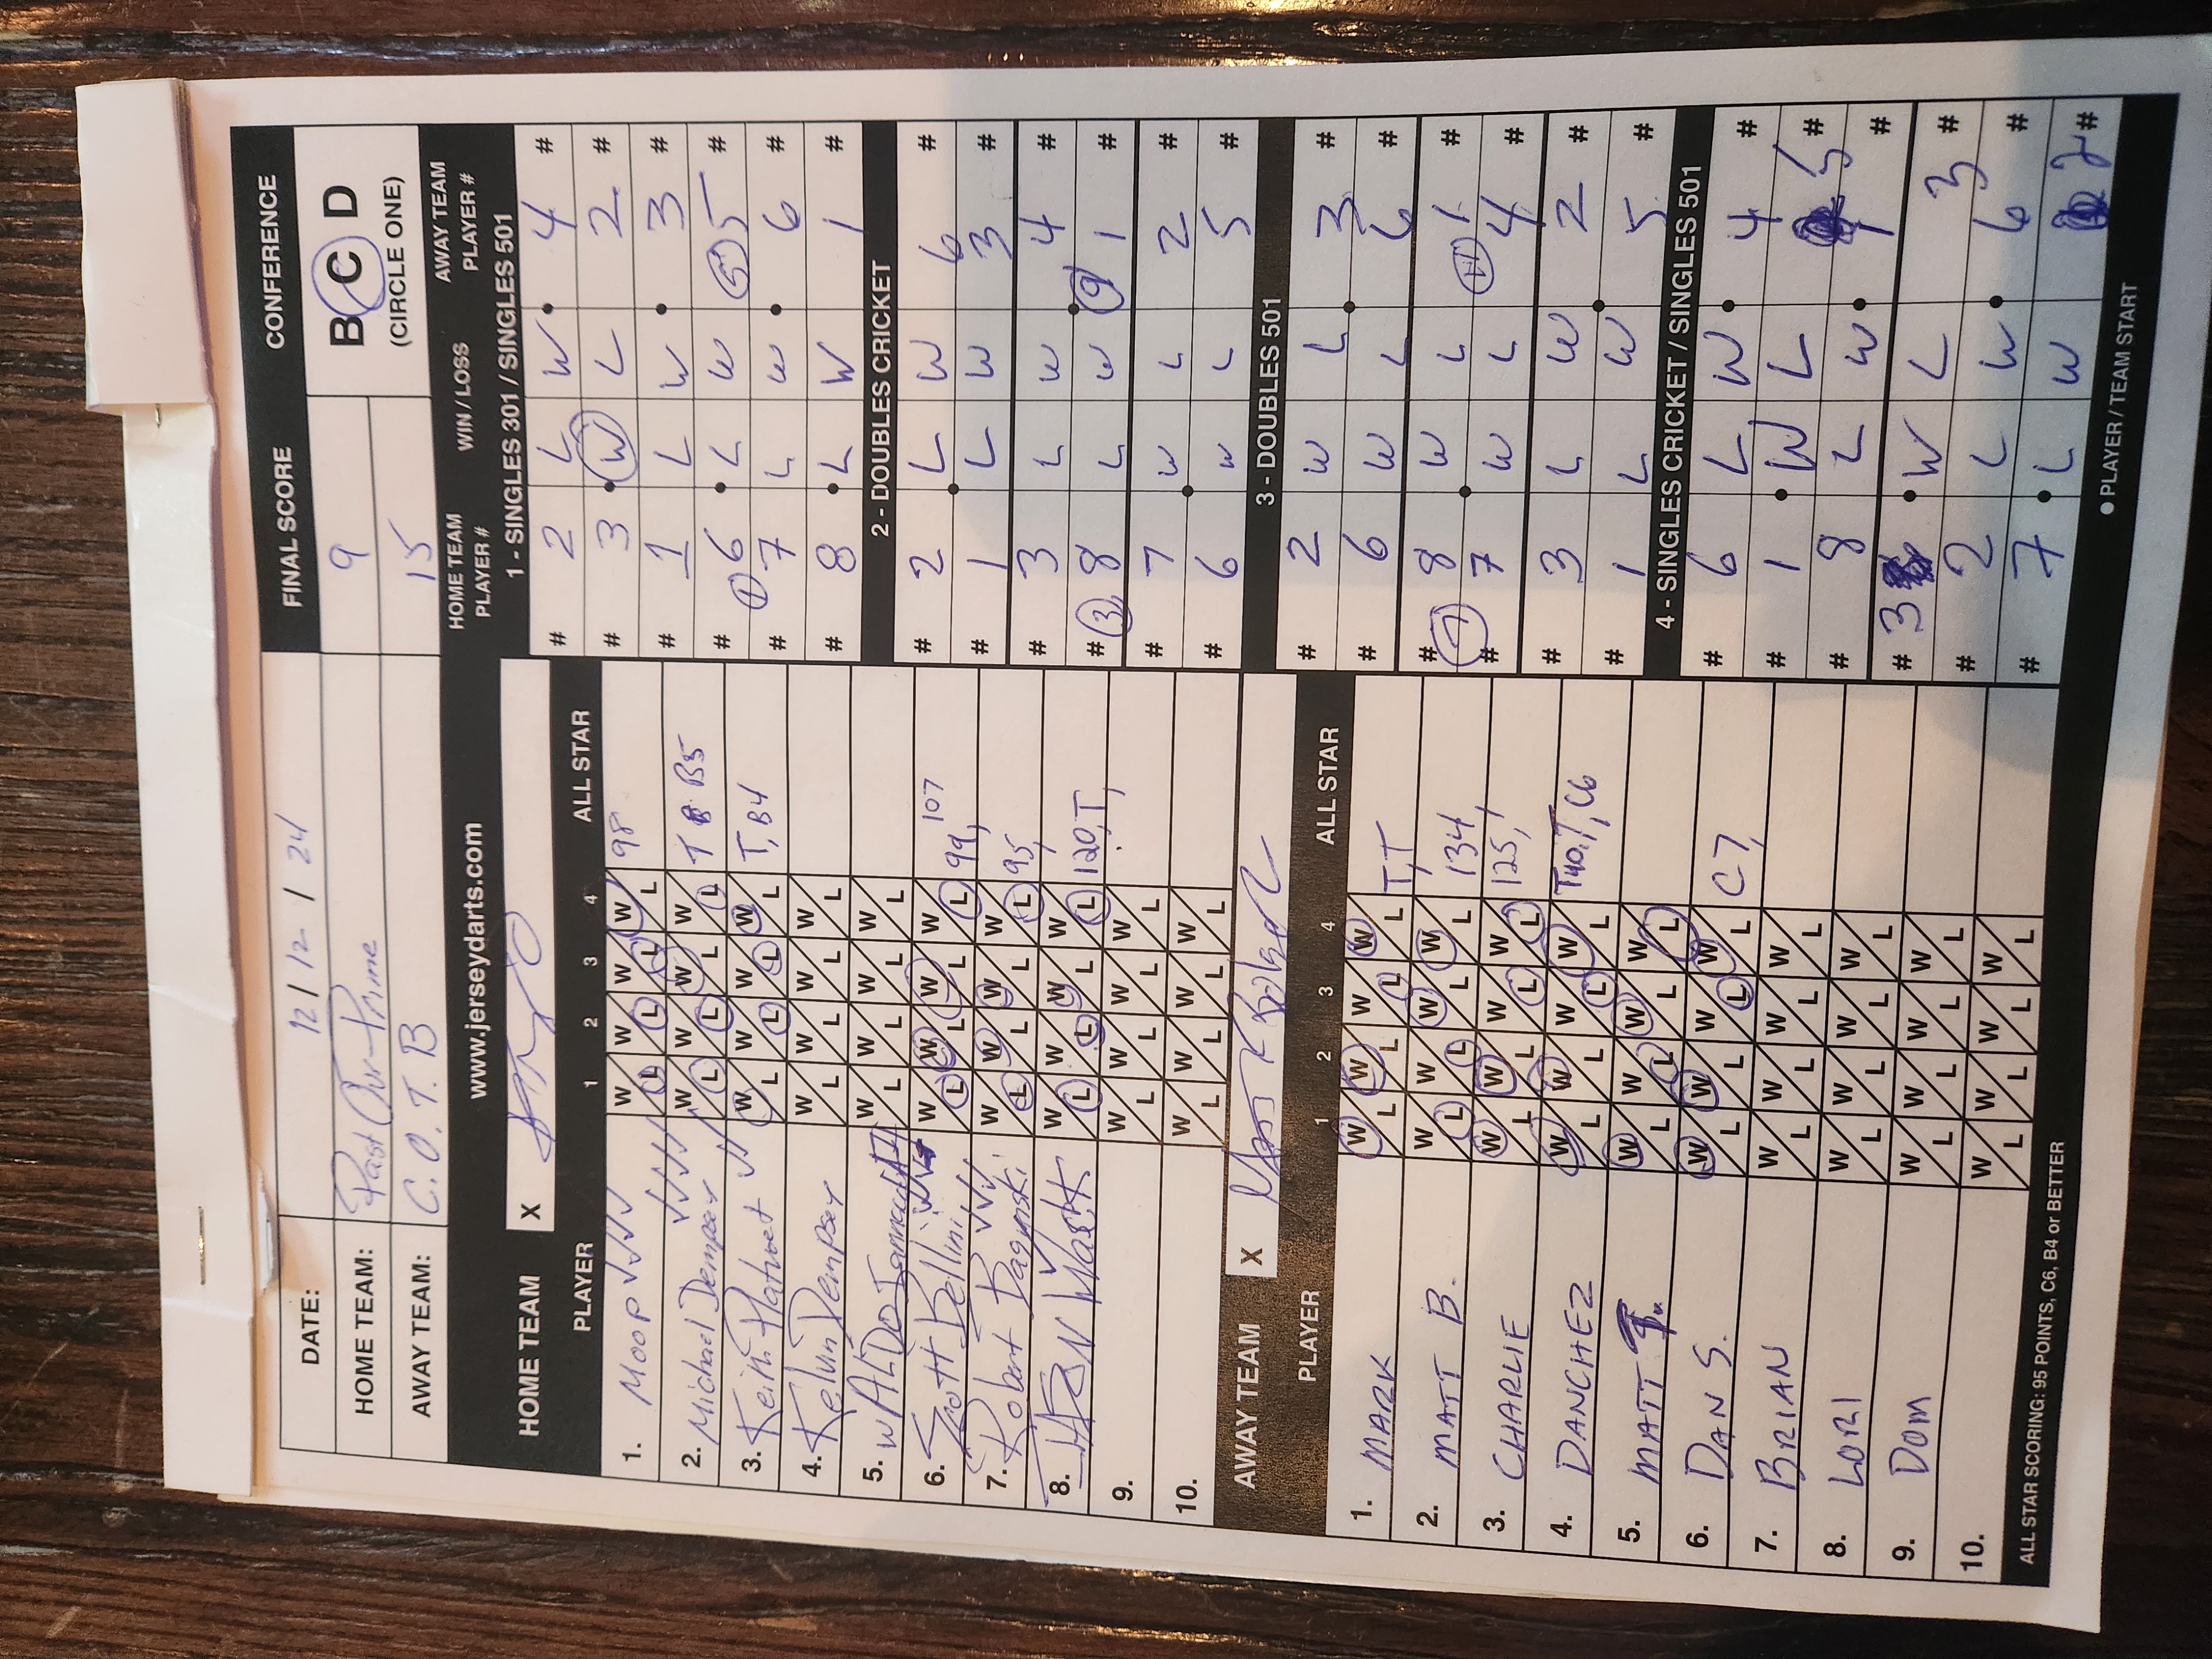 DATE: 12 / 12 / 24 FINAL SCORE CONFERENCE
HOME TEAM: Past Our Prime 9 B C D
AWAY TEAM: C. O. T. B 15 (CIRCLE ONE)
www.jerseydarts.com
HOME TEAM X
PLAYER 1 2 3 4 ALL STAR
1. MOOP ✓✓✓✓ W L W L W L W L 98
2. Michael Dempsey ✓✓✓✓ W L W L W L W L T B5
3. Keith ✓✓ W L W L W L W L T, B4
4. Kelvin Dempsey W L W L W L W L
5. WALDO W L W L W L W L
6. Scott Bellini W L W L W L W L 99, 107
7. Robert Bagynski ✓✓✓ W L W L W L W L 95,
8. W L W L W L W L 120, T,
9. W L W L W L W L
10. W L W L W L W L
AWAY TEAM X
PLAYER 1 2 3 4 ALL STAR
1. MARK W L W L W L W L T,T
2. MATT B. W L W L W L W L 134
3. CHARLIE W L W L W L W L 125,
4. DANCHEZ W L W L W L W L T, C6
5. MATT W L W L W L W L
6. DAN S. W L W L W L W L C7,
7. BRIAN W L W L W L W L
8. LORI W L W L W L W L
9. DOM W L W L W L W L
10. W L W L W L W L
ALL STAR SCORING: 95 POINTS, C6, B4 or BETTER
HOME TEAM PLAYER # WIN / LOSS AWAY TEAM PLAYER #
1 - SINGLES 301 / SINGLES 501
# 2 L W 4 #
# 3 W L 2 #
# 1 L W 3 #
# 6 L W 5 #
1 5
# 7 L W 6 #
# 8 L W 1 #
2 - DOUBLES CRICKET
# 2 L W 6 #
# 1 L W 3 #
# 3 L W 4 #
# 3 8 L W 9 1 #
# 7 W L 2 #
# 6 W L 5 #
3 - DOUBLES 501
# 2 W L 3 #
# 6 W L 6 #
# 8 W L 1 #
7 11
# 7 W L 4 #
# 3 L W 2 #
# 1 L W 5 #
4 - SINGLES CRICKET / SINGLES 501
# 6 L W 4 #
# 1 W L 5 #
# 8 L W 1 #
# 3 W L 3 #
# 2 L W 6 #
# 7 L W 2 #
● PLAYER / TEAM START